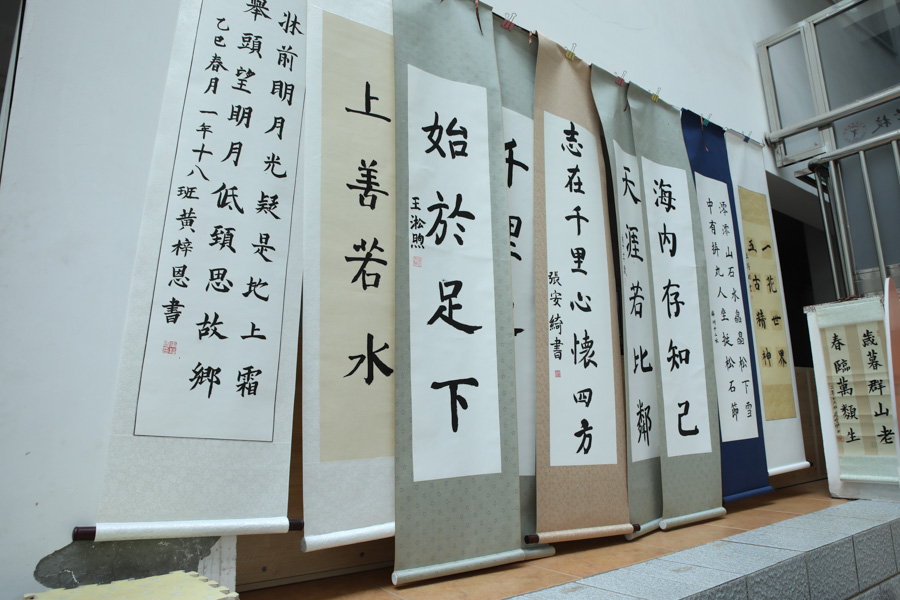 牀前明月光疑是地上霜
舉頭望明月低頭思故鄉
乙巳春月 一年十八班 黃梓恩 書
上善若水
始於足下
王淞煦
千里
志在千里心懷四方
張安綺書
天涯若比鄰
海內存知己
山石水晶晶松下雪
中有 人 松石節
一花世界
精神
歲暮群山老
春臨萬類生